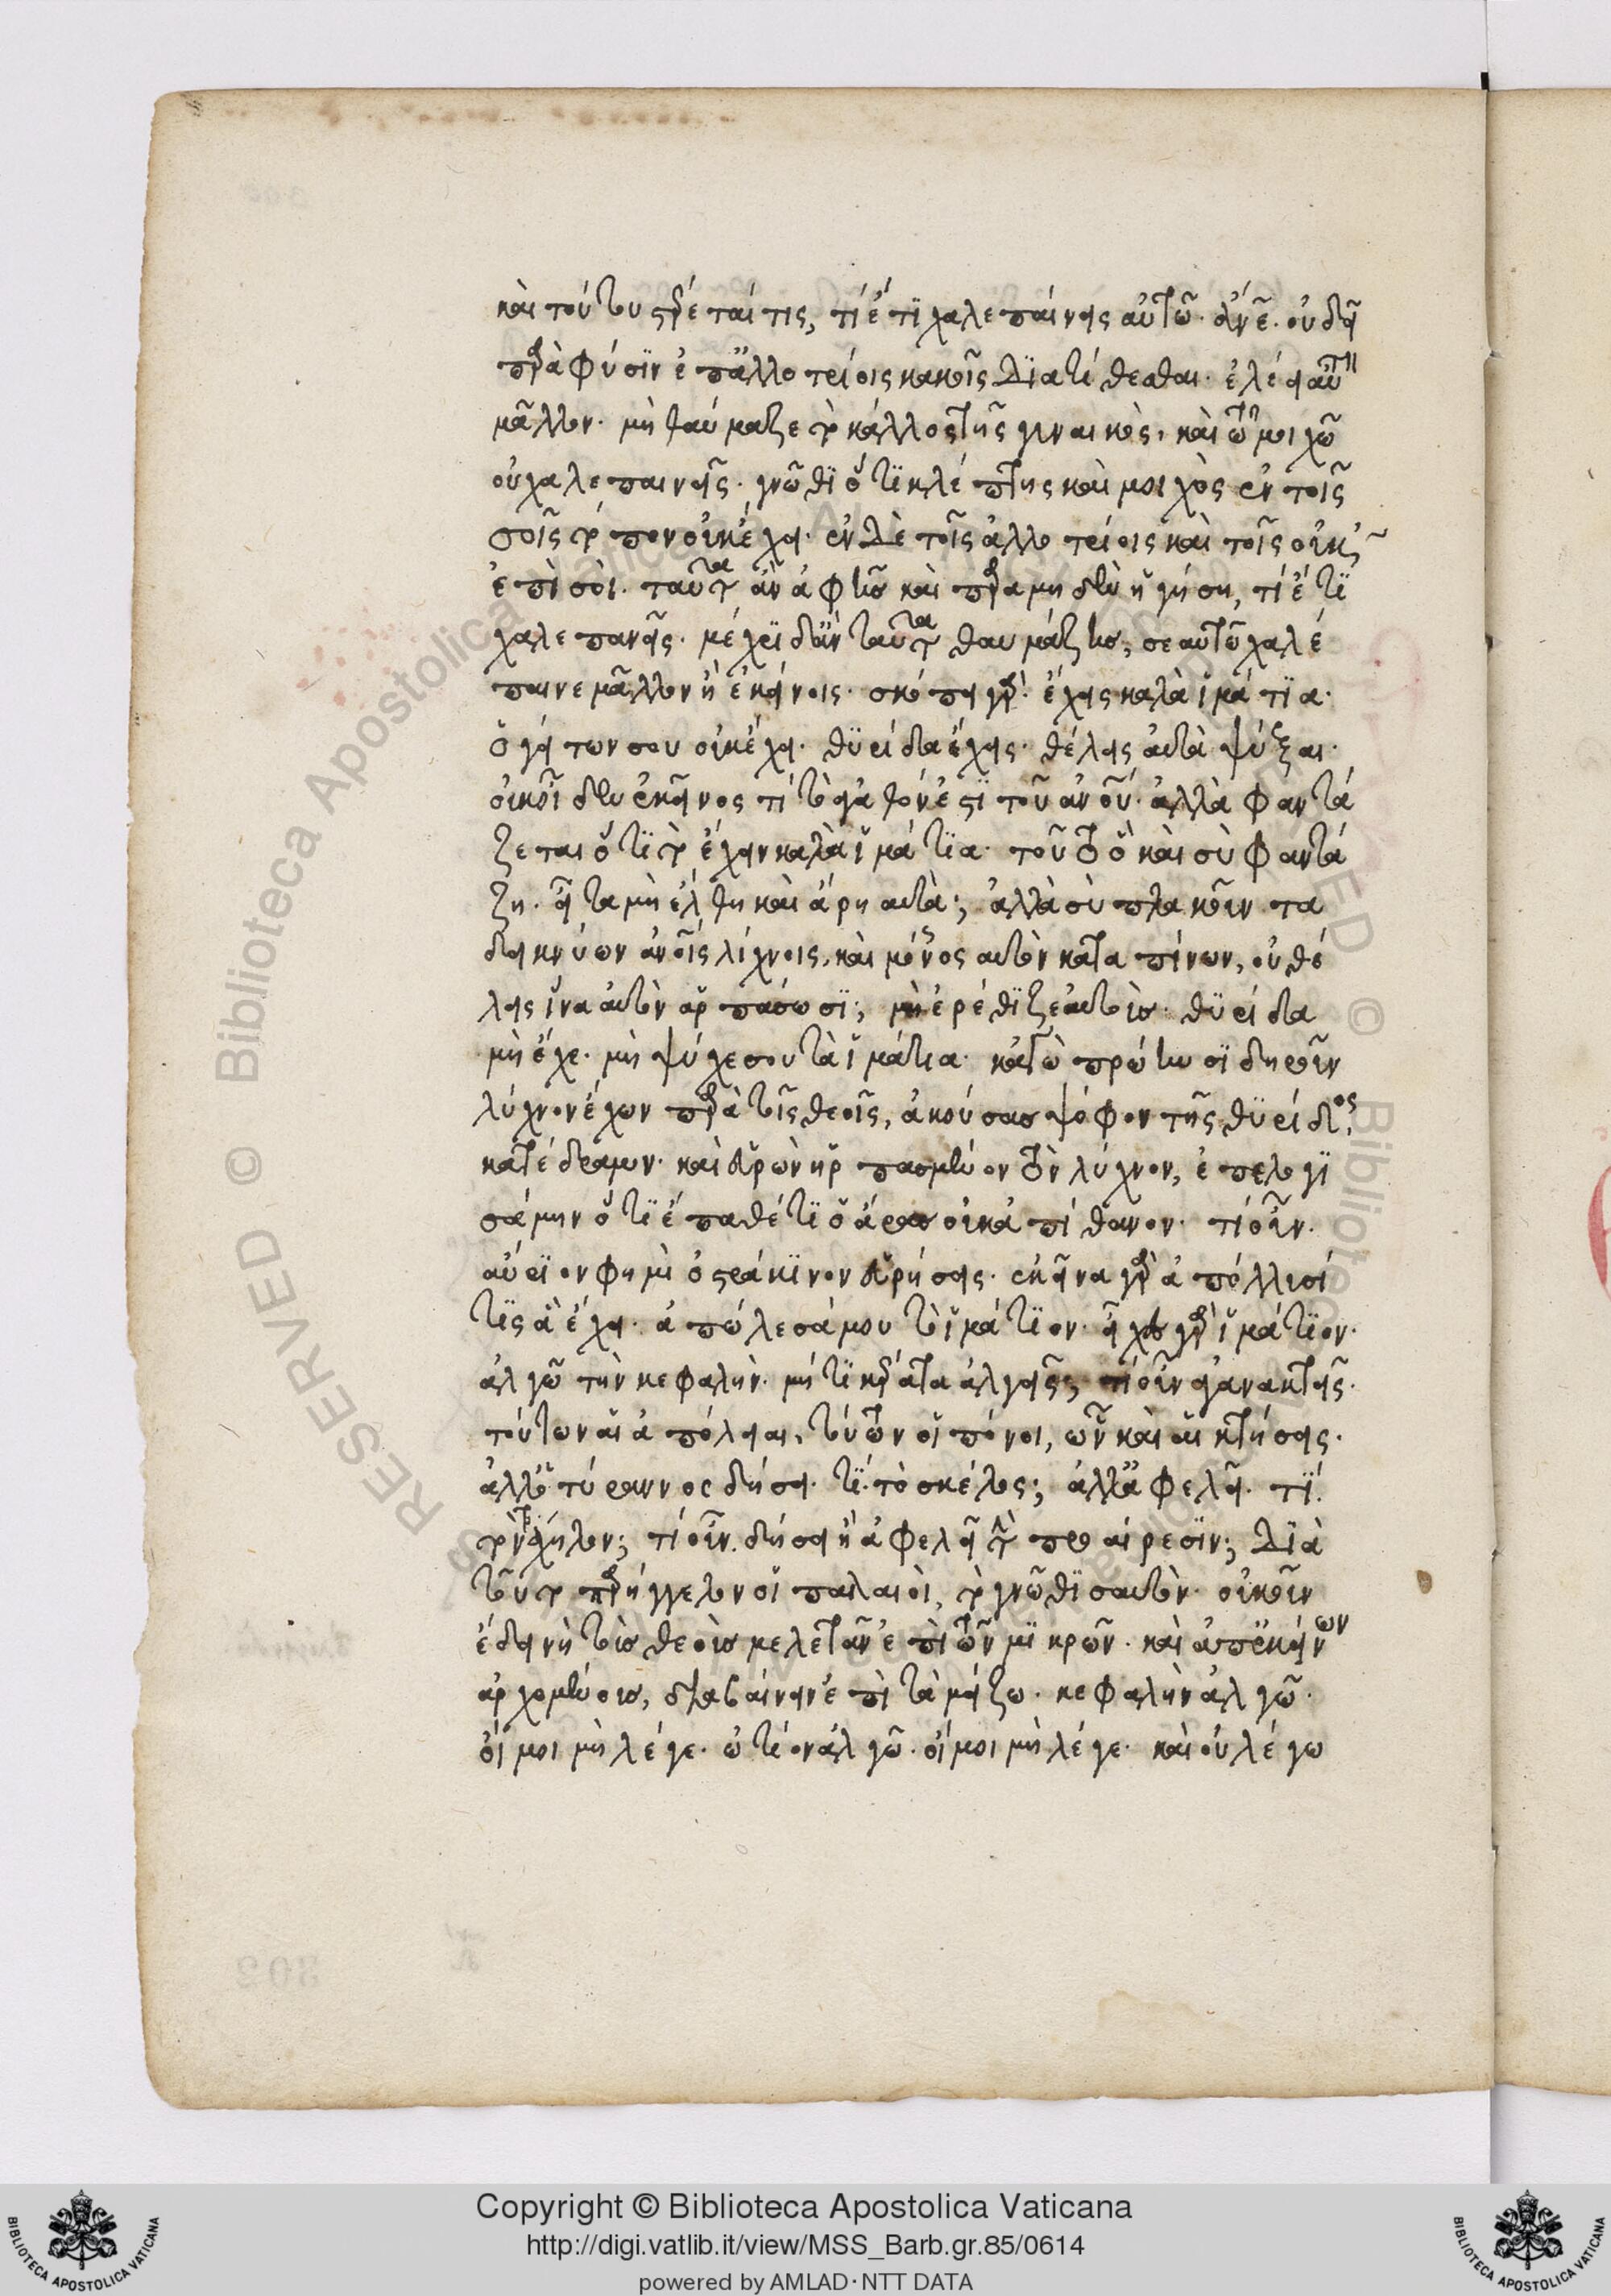 καὶ τούτου στέρεταί τις, τί ἔτι χαλεπαίνεις αὐτῶ· ἄνε. οὐ δεῖ
παρὰ φύσιν ἐπ' ἀλλοτρίοις κακοῖς διατίθεσθαι· ἐλέει αὐτὴ
μᾶλλον· μὴ θαύμαζε τὸ κάλλος τῆς γυναικὸς, καὶ τῶ μοιχῶ
οὐ χαλεπαινεῖς· γνῶθι ὅτι κλέπτης καὶ μοιχὸς ἐν τοῖς
σοῖς τόπον οὐκ ἔχει· ἐν δὲ τοῖς ἀλλοτρίοις καὶ τοῖς οὐκ
ἐπὶ σοὶ· ταῦτα ἂν ἀφῆς καὶ παρα μηδὲν ἡγήση, τί ἔτι
χαλεπανεῖς· μέχρι δ' ἂν ταῦτα θαυμάζης, σεαυτῶ χαλέ
παινε μᾶλλον ἢ ἐκείνοις· σκόπει γὰρ· ἔχεις καλὰ ἱμάτια·
ὁ γείτων σου οὐκ ἔχει· θυρίδα ἔχεις· θέλεις αὐτὰ ψύξαι·
οὐκ οἶδεν ἐκεῖνος τί τὸ ἀγαθόν ἐστι τοῦ ἀνου· ἀλλὰ φαντά
ζεται ὅτι τὸ ἔχειν καλὰ ἱμάτια· τοῦτο ὃ καὶ σὺ φαντά
ζη. εἶτα μὴ ἔλθη καὶ ἄρη αὐτὰ; ἀλλὰ σὺ πλακοῦντα
δεικνύων ἀνοις λίχνοις, καὶ μόνος αὐτὸν καταπίνων, οὐ θέ
λεις ἵνα αὐτὸν ἁρπάσωσι; μὴ ἐρέθιζε αὐτοὺς· θυρίδα
μὴ ἔχε· μὴ ψύχε σου τὰ ἱμάτια· κἀγὼ πρώην σιδηροῦν
λύχνον ἔχων παρὰ τοῖς θεοῖς, ἀκούσας ψόφον τῆς θυρίδος,
κατέδραμον· καὶ εὗρον ἡρπασμένον τὸν λύχνον, ἐπελογι
σάμην ὅτι ἔπαθέ τι ὁ ἄρας οὐκ ἀπίθανον· τί οὖν.
αὔριον φημὶ ὀστράκινον εὑρήσεις· ἐκεῖνα γὰρ ἀπόλλυσί
τις ἃ ἔχει· ἀπώλεσά μου τὸ ἱμάτιον· εἶχες γὰρ ἱμάτιον·
ἀλγῶ τὴν κεφαλὴν· μή τι κέρατα ἀλγεῖς; τί οὖν ἀγανακτεῖς·
τούτων αἱ ἀπόλειαι, τούτων οἱ πόνοι, ὧν καὶ αἱ κτήσεις·
ἀλλ' ὁ τύραννος δήσει· τί· τὸ σκέλος; ἀλλ' ἀφελεῖ· τί·
τὸν τράχηλον; τί οὖν. δήσει ἢ ἀφελεῖ τὴν προαίρεσιν; Διὰ
τοῦτο παρήγγελον οἱ παλαιοὶ, τὸ γνῶθι σαυτὸν· οὐκοῦν
ἔδει νὴ τοὺς θεοὺς μελετᾶν ἐπὶ τῶν μικρῶν· καὶ ἀπ' ἐκείνων
ἀρχομένους, διαβαίνειν ἐπὶ τὰ μείζω· κεφαλὴν ἀλγῶ·
οἴμοι μὴ λέγε· ὠτίον ἀλγῶ· οἴμοι μὴ λέγε· καὶ οὐ λέγω
Copyright © Biblioteca Apostolica Vaticana
http://digi.vatlib.it/view/MSS_Barb.gr.85/0614
powered by AMLAD·NTT DATA